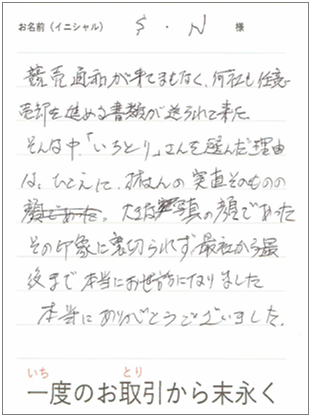 お名前(イニシャル) S・N 様
競売通知が来てまもなく、何社も任意
売却を進める書類が送られて来た
そんな中、「いちとり」さんを選んだ理由
は、ひとえに、 実直そのものの
顔であった。大きな写真の顔であった
その印象に裏切られず最初から最
後まで本当にお世話になりました
本当にありがとうございました。
いち とり
一度のお取引から末永く